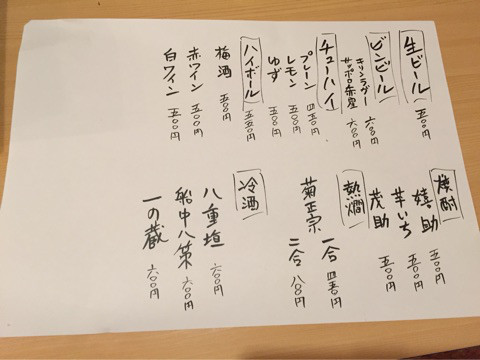 生ビール 五〇〇円
ビンビール
キリンラガー 六〇〇円
サッポロ赤星 六〇〇円
チューハイ
プレーン 四五〇円
レモン 五〇〇円
ゆず 五〇〇円
ハイボール 五五〇円
梅酒 五〇〇円
赤ワイン 五〇〇円
白ワイン 五〇〇円
焼酎
嬉助 五〇〇円
芋いち 五〇〇円
茂助 五〇〇円
熱燗
菊正宗 一合 四五〇円
二合 八〇〇円
冷酒
八重垣 六〇〇円
船中八策 六〇〇円
一の蔵 六〇〇円